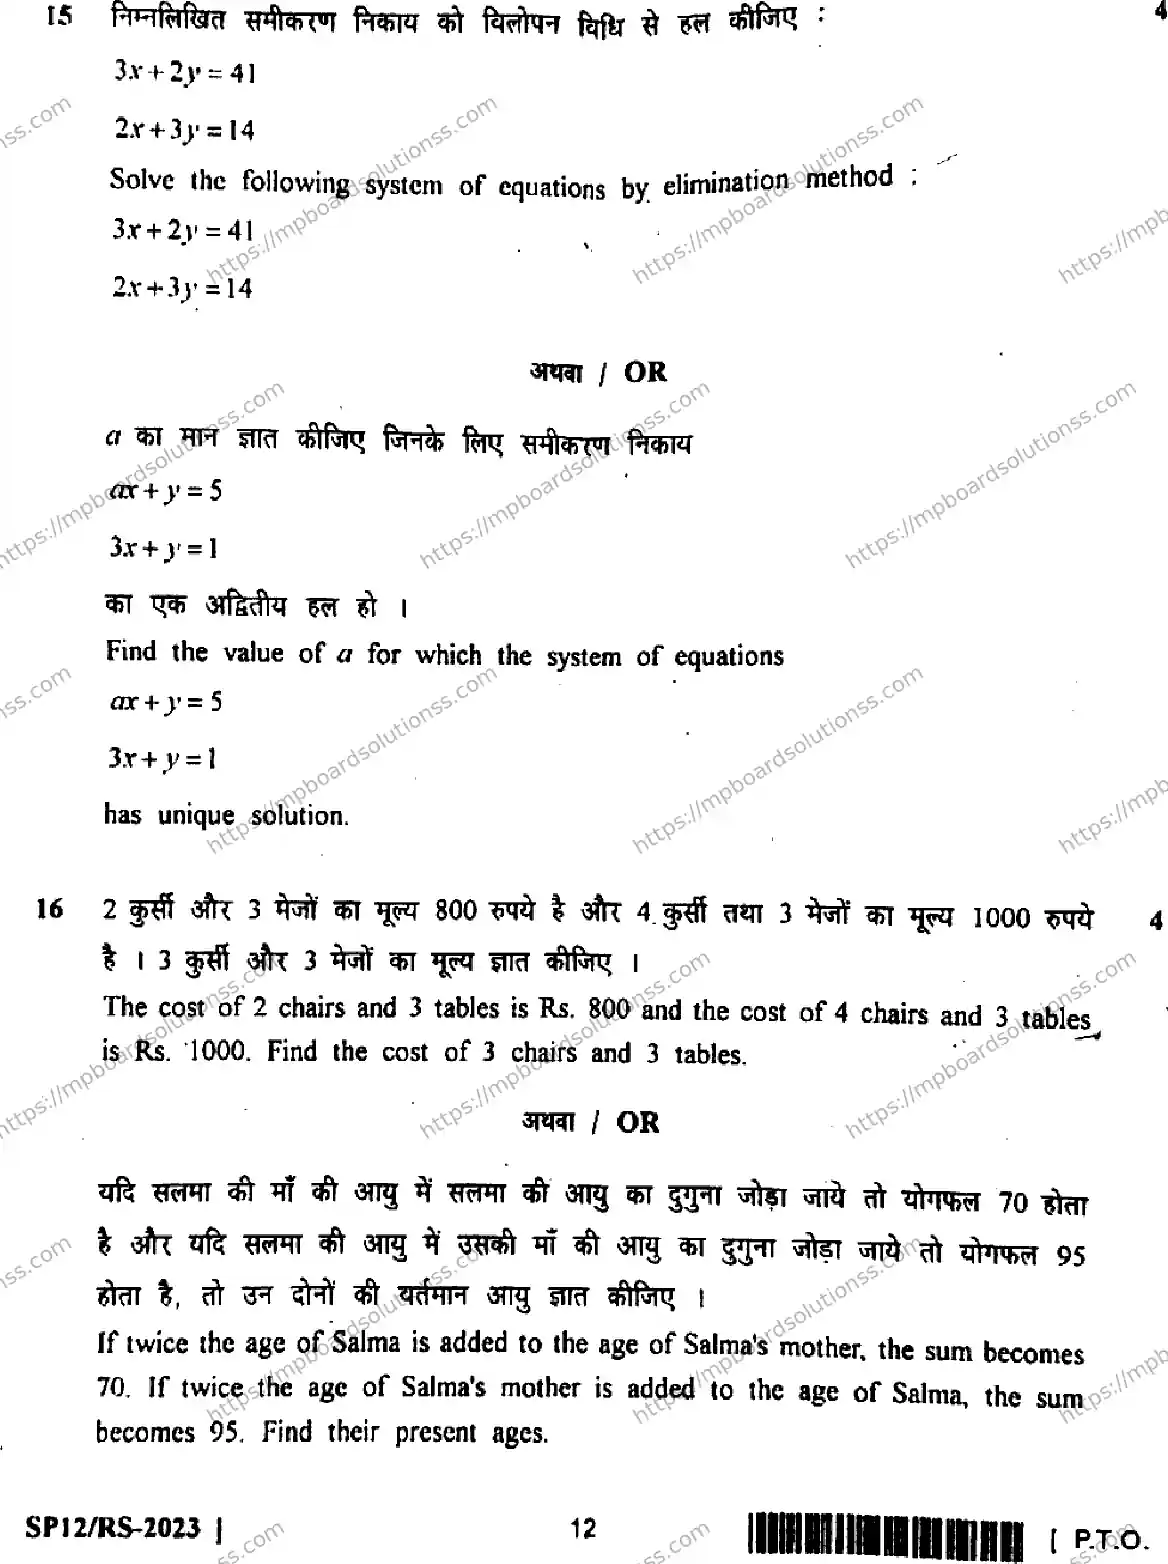 15 निम्नलिखित समीकरण निकाय को विलोपन विधि से हल कीजिए : 4
3x + 2y = 41
2x + 3y = 14
Solve the following system of equations by elimination method :
3x + 2y = 41
2x + 3y = 14
अथवा / OR
a का मान ज्ञात कीजिए जिनके लिए समीकरण निकाय
ax + y = 5
3x + y = 1
का एक अद्वितीय हल हो ।
Find the value of a for which the system of equations
ax + y = 5
3x + y = 1
has unique solution.
16 2 कुर्सी और 3 मेजों का मूल्य 800 रुपये है और 4 कुर्सी तथा 3 मेजों का मूल्य 1000 रुपये 4
है । 3 कुर्सी और 3 मेजों का मूल्य ज्ञात कीजिए ।
The cost of 2 chairs and 3 tables is Rs. 800 and the cost of 4 chairs and 3 tables
is Rs. 1000. Find the cost of 3 chairs and 3 tables.
अथवा / OR
यदि सलमा की माँ की आयु में सलमा की आयु का दुगुना जोड़ा जाये तो योगफल 70 होता
है और यदि सलमा की आयु में उसकी माँ की आयु का दुगुना जोड़ा जाये तो योगफल 95
होता है, तो उन दोनों की वर्तमान आयु ज्ञात कीजिए ।
If twice the age of Salma is added to the age of Salma's mother, the sum becomes
70. If twice the age of Salma's mother is added to the age of Salma, the sum
becomes 95. Find their present ages.
SP12/RS-2023 ] 12 [ P.T.O.
https://mpboardsolutionss.com